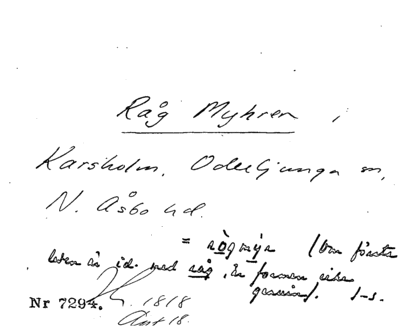 Råg Myhren i
Karsholm, Oderljunga sn,
N. Åsbo hd.
= rògmýr (Om första
leden är id. med råg, är formen icke
genuin). I-s.
Nr 7294. 1818